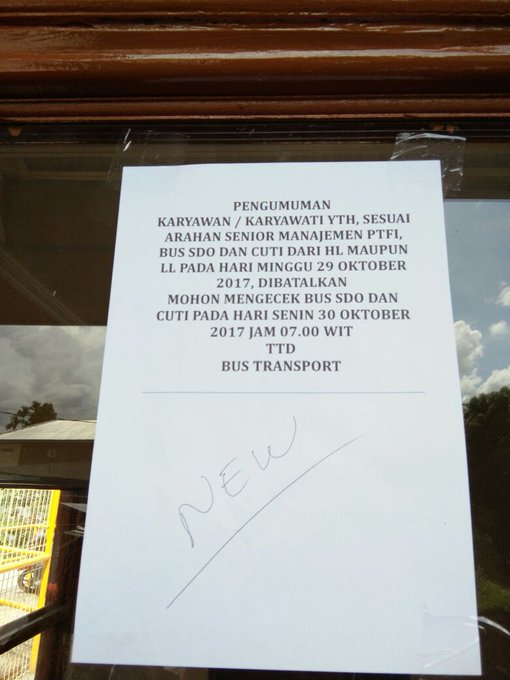 PENGUMUMAN
KARYAWAN / KARYAWATI YTH, SESUAI
ARAHAN SENIOR MANAJEMEN PTFI,
BUS SDO DAN CUTI DARI HL MAUPUN
LL PADA HARI MINGGU 29 OKTOBER
2017, DIBATALKAN
MOHON MENGECEK BUS SDO DAN
CUTI PADA HARI SENIN 30 OKTOBER
2017 JAM 07.00 WIT
TTD
BUS TRANSPORT
NEW